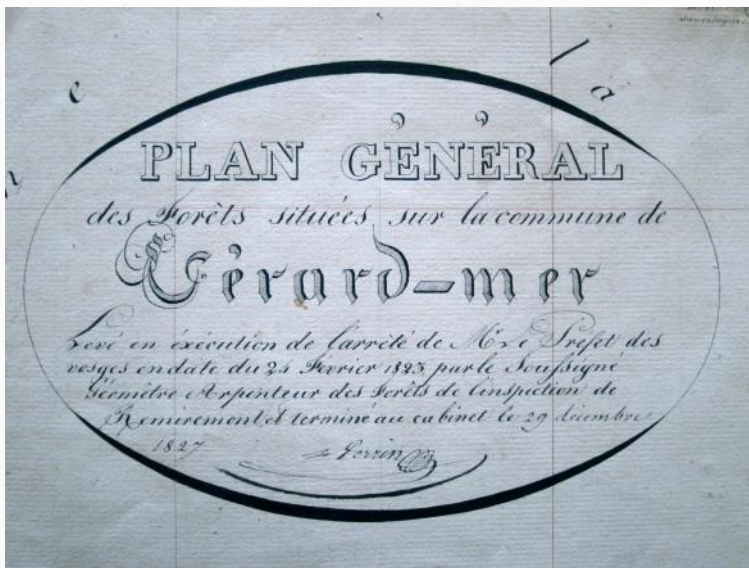 la
PLAN GÉNÉRAL
des Forêts situées sur la commune de
Gérard-mer
Levé en éxécution de l'arrêté de Mr Le Prefet des
vosges en date du 24 Février 1823, par le Soussigné
Géomètre Arpenteur des Forêts de l'inspection de
Remiremont et terminé au cabinet le 29 décembre
1827
Perrin